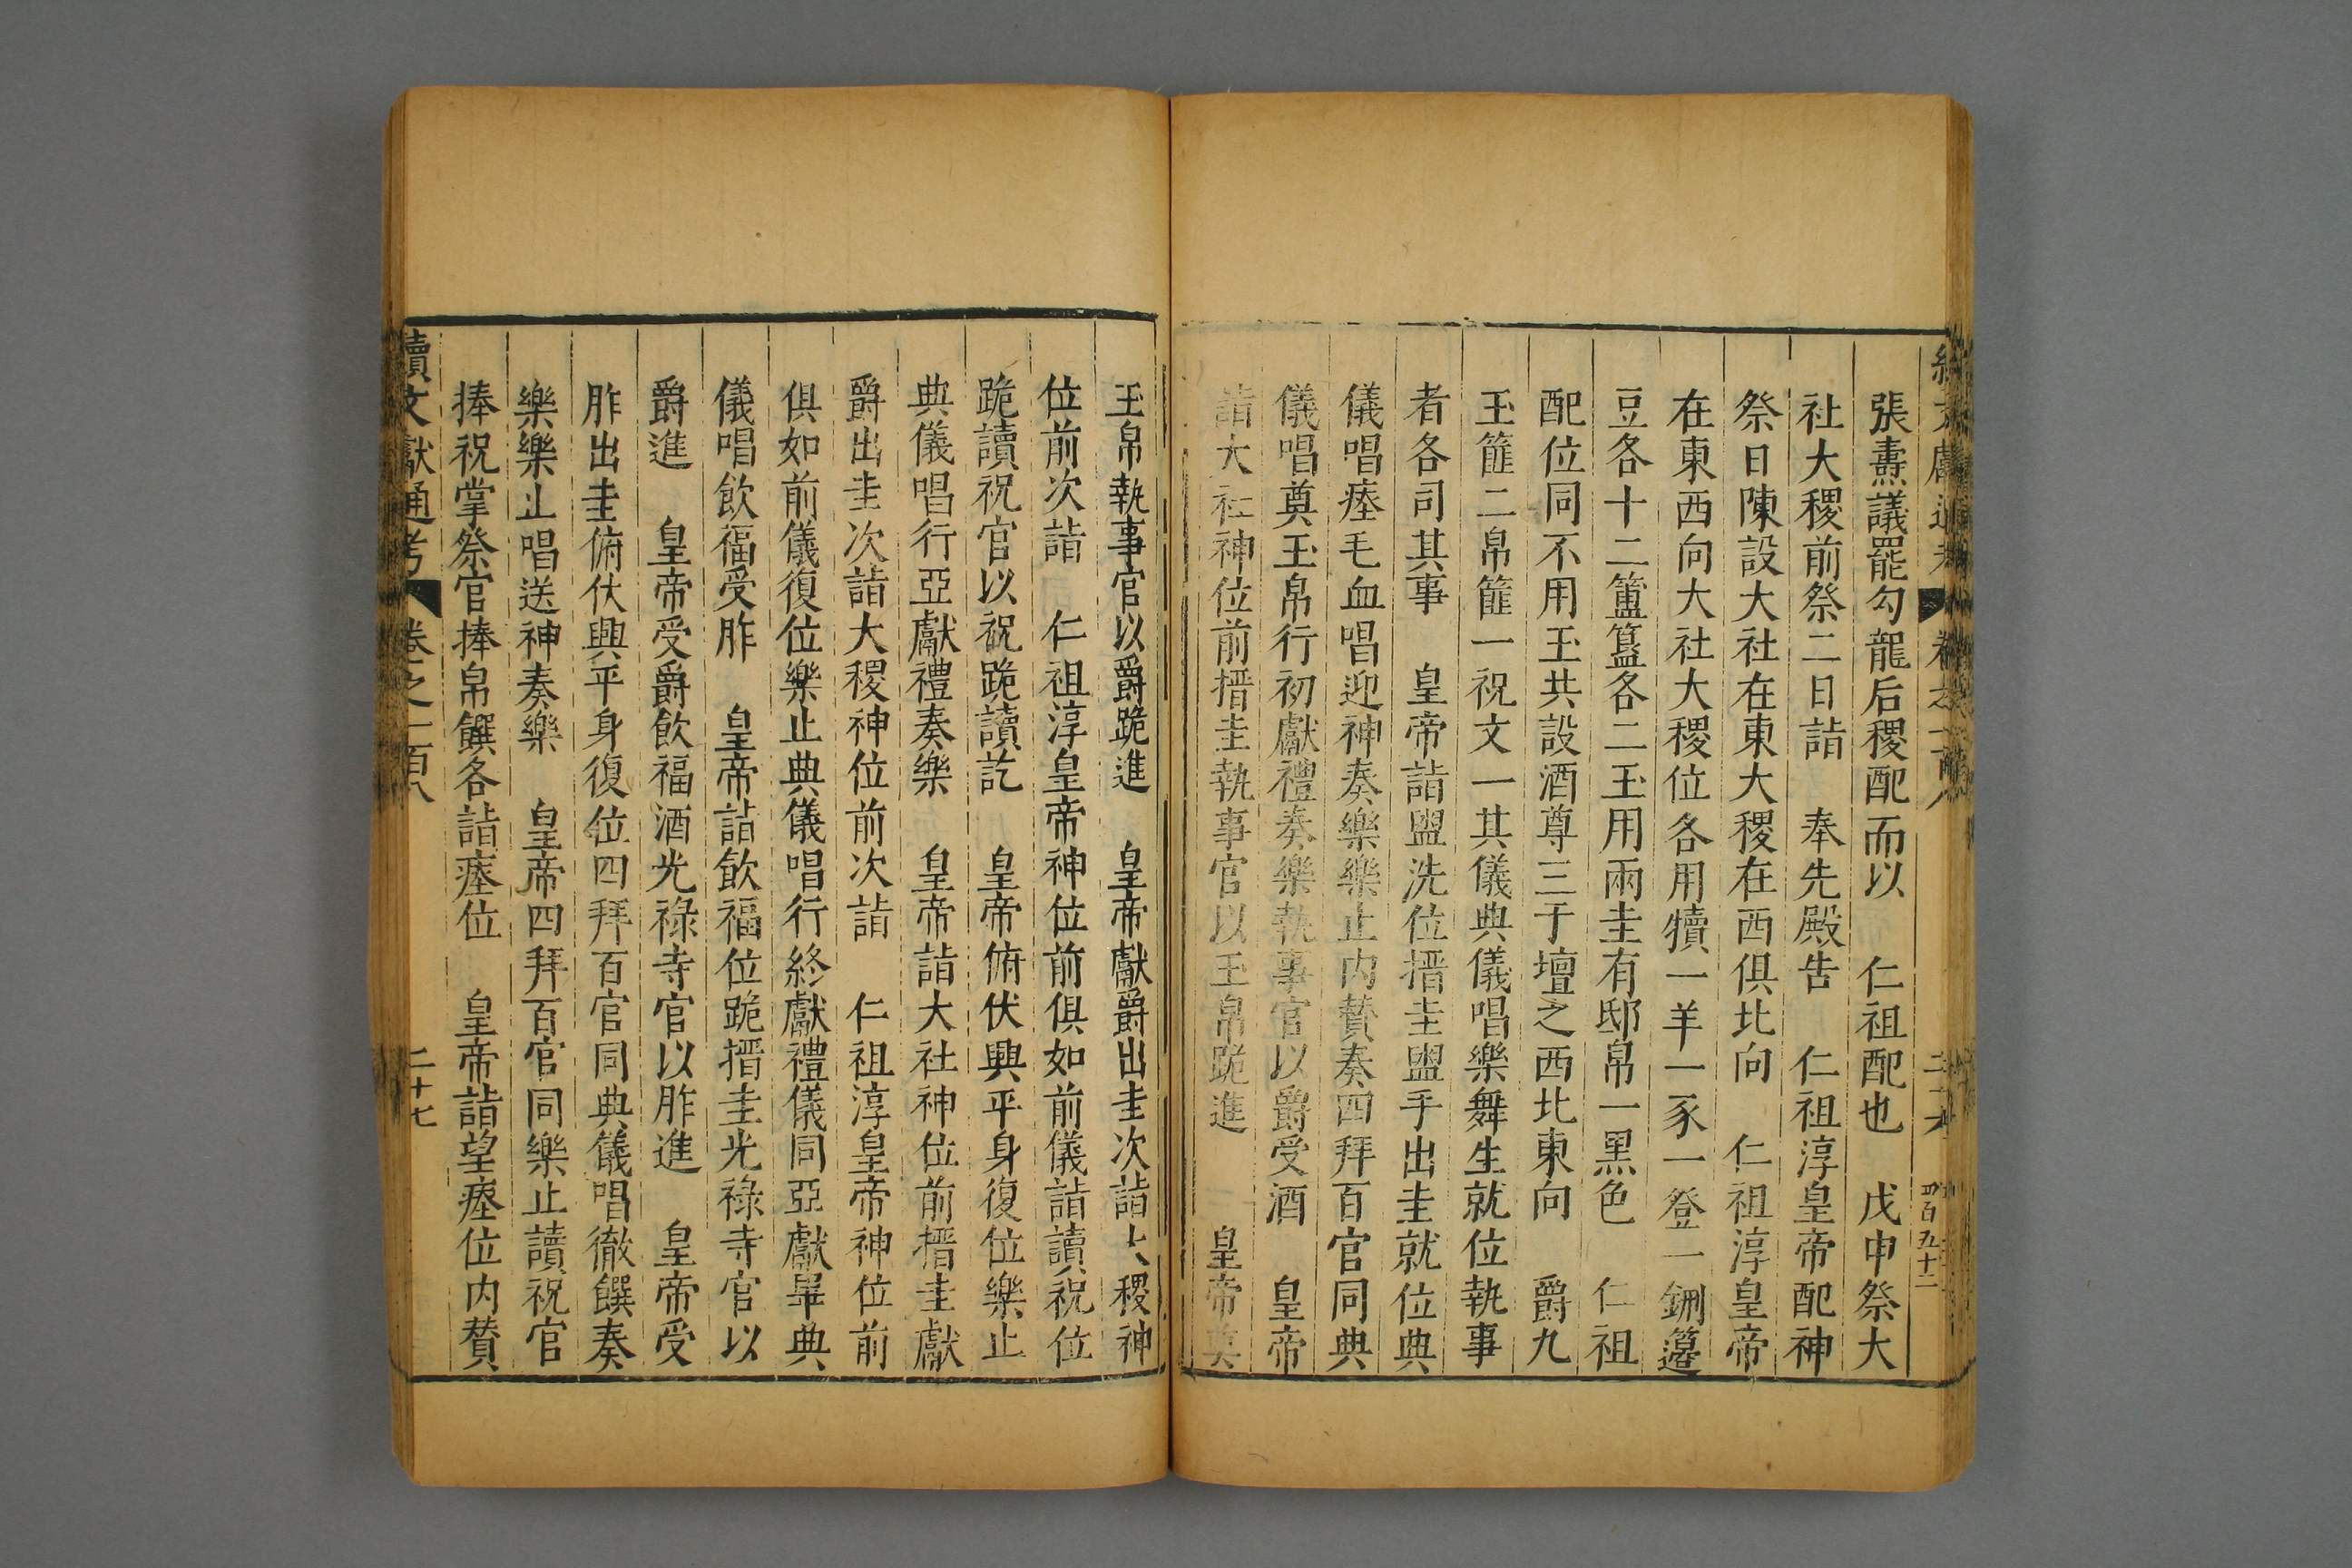 張燾議罷勾龍后稷配而以　仁祖配也　戊申祭大
社大稷前祭二日詣　奉先殿告　仁祖淳皇帝配神
祭日陳設大社在東大稷在西俱北向　仁祖淳皇帝
在東西向大社大稷位各用犢一羊一豕一登一鉶籩
豆各十二簠簋各二玉用兩圭有邸帛一黑色　仁祖
配位同不用玉共設酒尊三于壇之西北東向　爵九
玉篚二帛篚一祝文一其儀典儀唱樂舞生就位執事
者各司其事　皇帝詣盥洗位搢圭盥手出圭就位典
儀唱瘞毛血唱迎神奏樂樂止内贊奏四拜百官同典
儀唱奠玉帛行初獻禮奏樂執事官以爵受酒　皇帝
詣大社神位前搢圭執事官以玉帛跪進　皇帝奠
玉帛執事官以爵跪進　皇帝獻爵出圭次詣大稷神
位前次詣　仁祖淳皇帝神位前俱如前儀詣讀祝位
跪讀祝官以祝跪讀訖　皇帝俯伏興平身復位樂止
典儀唱行亞獻禮奏樂　皇帝詣大社神位前搢圭獻
爵出圭次詣大稷神位前次詣　仁祖淳皇帝神位前
俱如前儀復位樂止典儀唱行終獻禮儀同亞獻畢典
儀唱飲福受胙　皇帝詣飲福位跪搢圭光祿寺官以
爵進　皇帝受爵飲福酒光祿寺官以胙進　皇帝受
胙出圭俯伏興平身復位四拜百官同典儀唱徹饌奏
樂樂止唱送神奏樂　皇帝四拜百官同樂止讀祝官
捧祝掌祭官捧帛饌各詣瘞位　皇帝詣望瘞位内贊
續文獻通考　卷之一百八　二十七